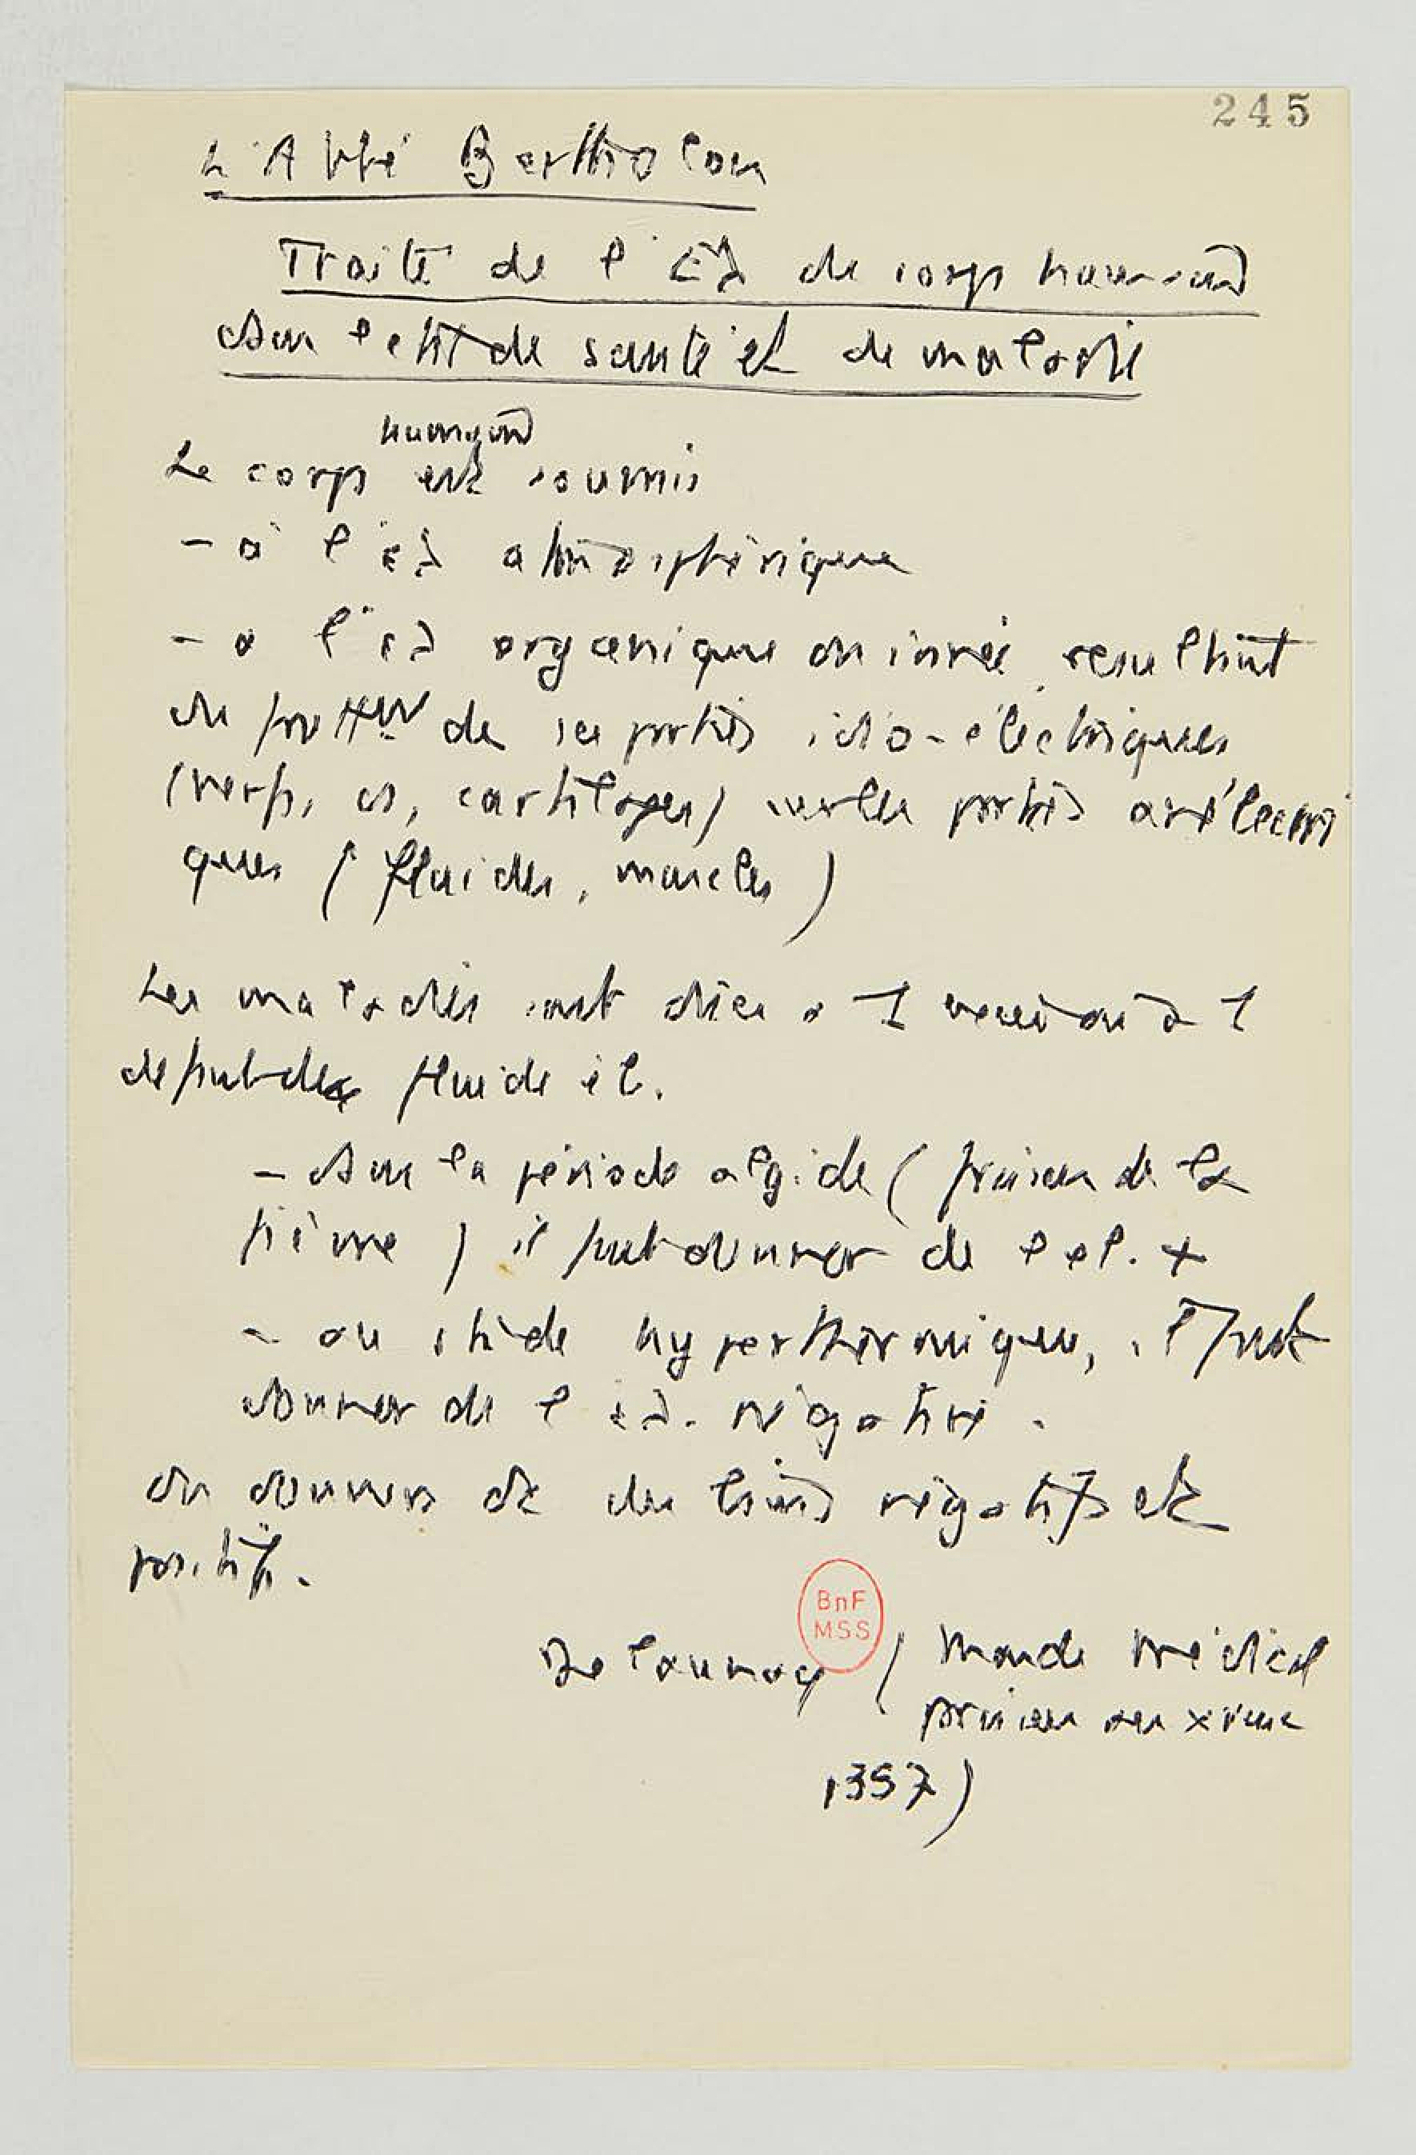 245
L'Abbé Bertholon
Traité de l'Eté du corps humain
dans l'état de santé et de maladie
humain
Le corps est soumis
- à l'été atmosphérique
- à l'été organique ou innée, resultant
du frottemt de ses parties idio-électriques
(nerfs, os, cartilages) sur les parties anélectri
ques (fluides, muscles)
Les maladies sont dues à 1 excès ou à 1
de fluide él.
- dans la période algide (frisson de la
fièvre) il faut donner de l'él. +
- au stade hyperthermique, il faut
donner de l'été. négative.
On donnera dc des bains négatifs et
positifs.
BnF
MSS
Delaunay (Monde médical
1957)